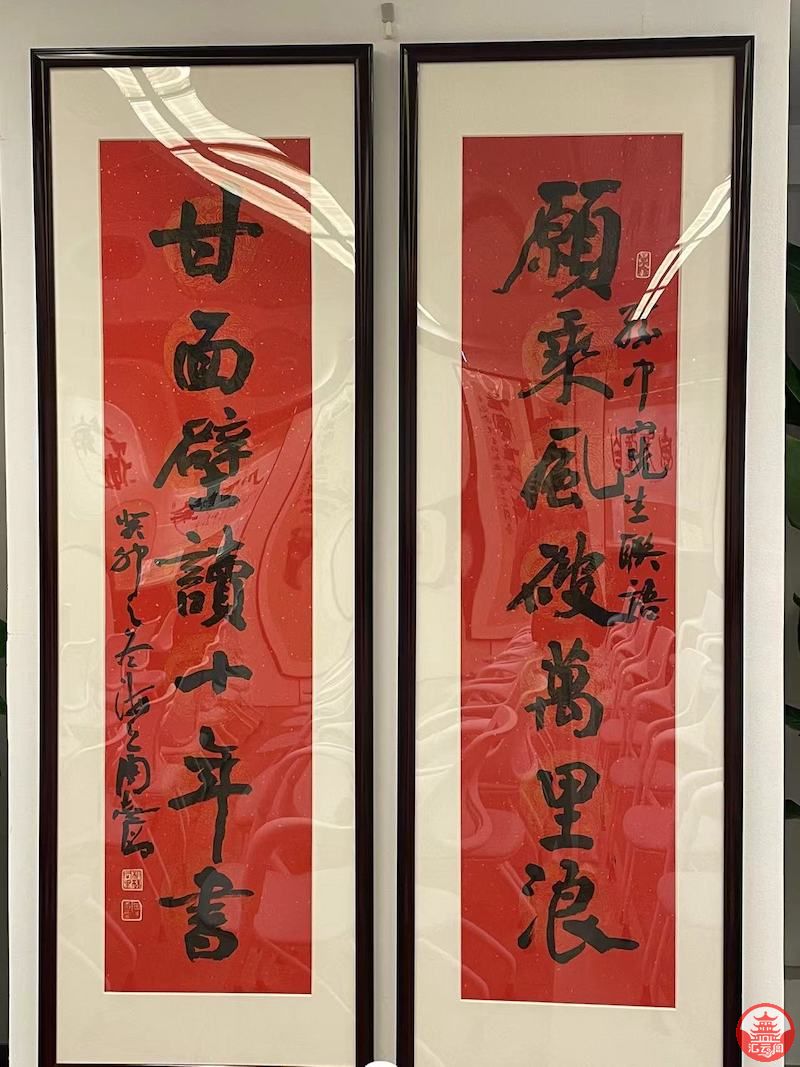 願乘風破萬里浪
孫中山先生聯語
甘面壁讀十年書
癸卯之 海上周
汇云阁